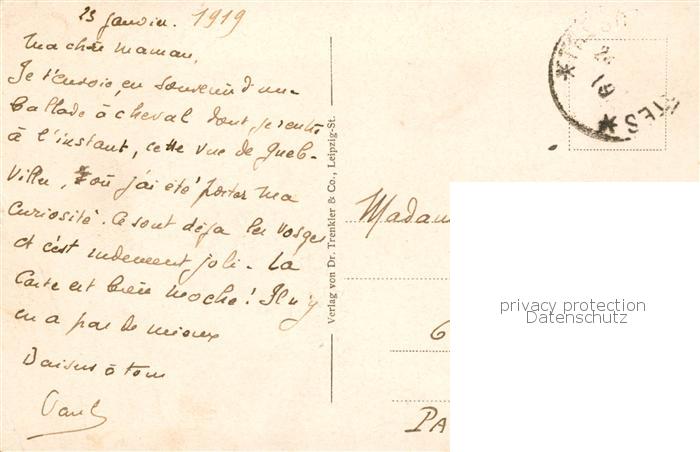 23 janvier. 1919
Ma chère maman,
Je t'envoie, en souvenir d'une
ballade à cheval dont je rentre
à l'instant, cette vue de Gueb-
viller, où j'ai été porter ma
curiosité. Ce sont déjà les vosges
et c'est rudement joli - La
carte est bien moche! Il n'y
en a pas de mieux
Baisers à tous
Paul
Verlag von Dr. Trenkler & Co., Leipzig-St.
Madam
6
PA
TES
19
privacy protection
Datenschutz